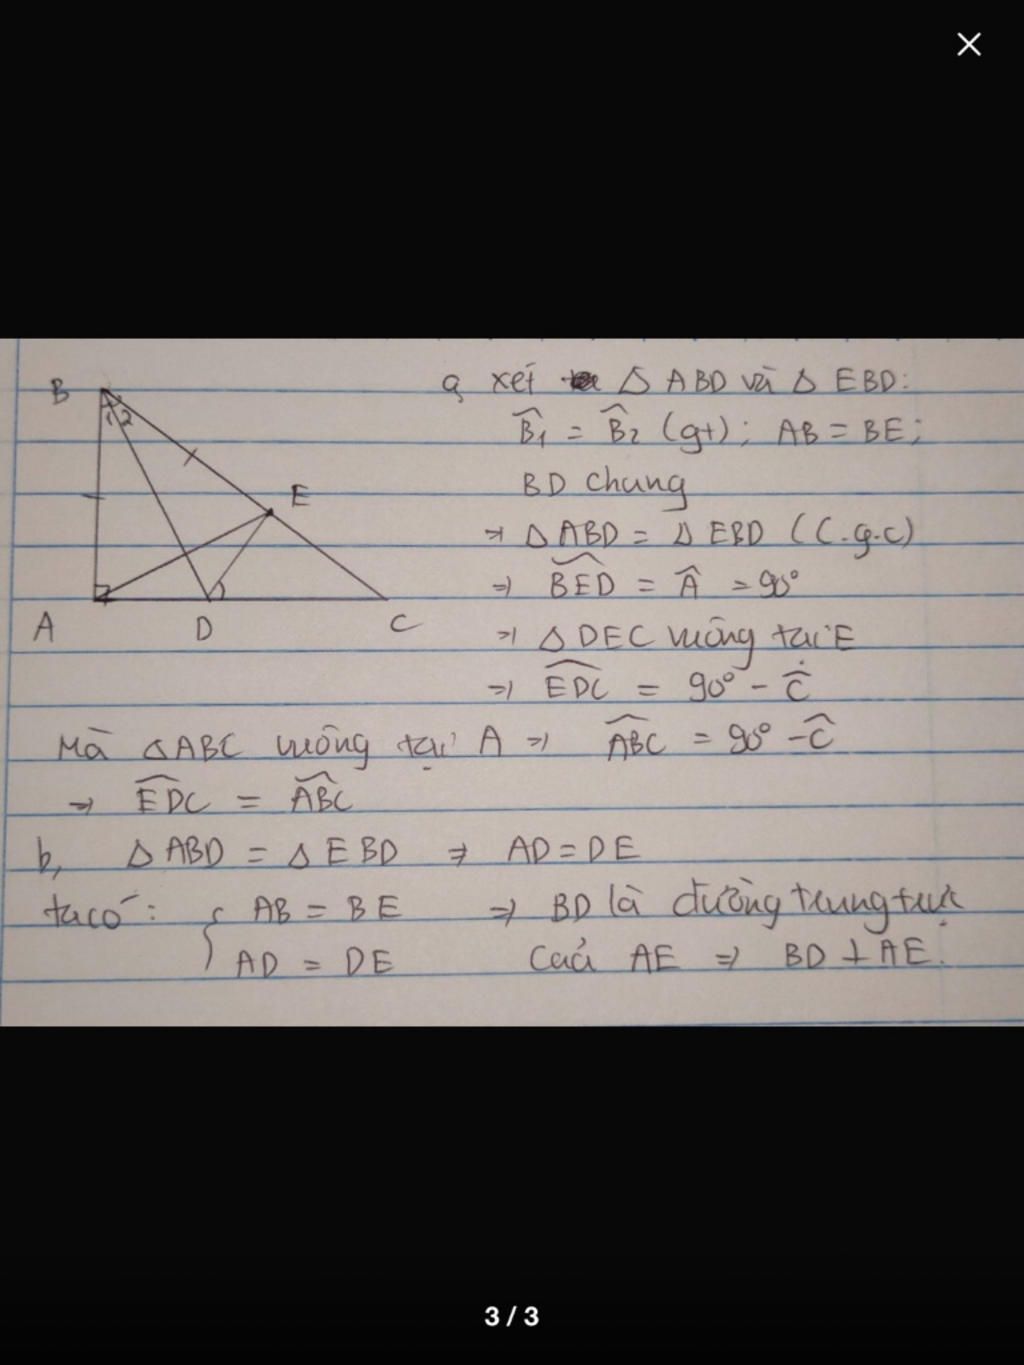 B
1 2
E
A
D
C
a, xét △ ABD và △ EBD:
B̂1 = B̂2 (gt); AB = BE;
BD chung
=> △ ABD = △ EBD (C.g.c)
=> BED = Â = 90°
=> △ DEC vuông tại E
=> EDC = 90° - Ĉ
Mà △ABC vuông tại A => ABC = 90° - Ĉ
=> EDC = ABC
b, △ ABD = △ EBD => AD = DE
ta có: { AB = BE => BD là đường trung trực
AD = DE Của AE => BD ⊥ AE.
3 / 3